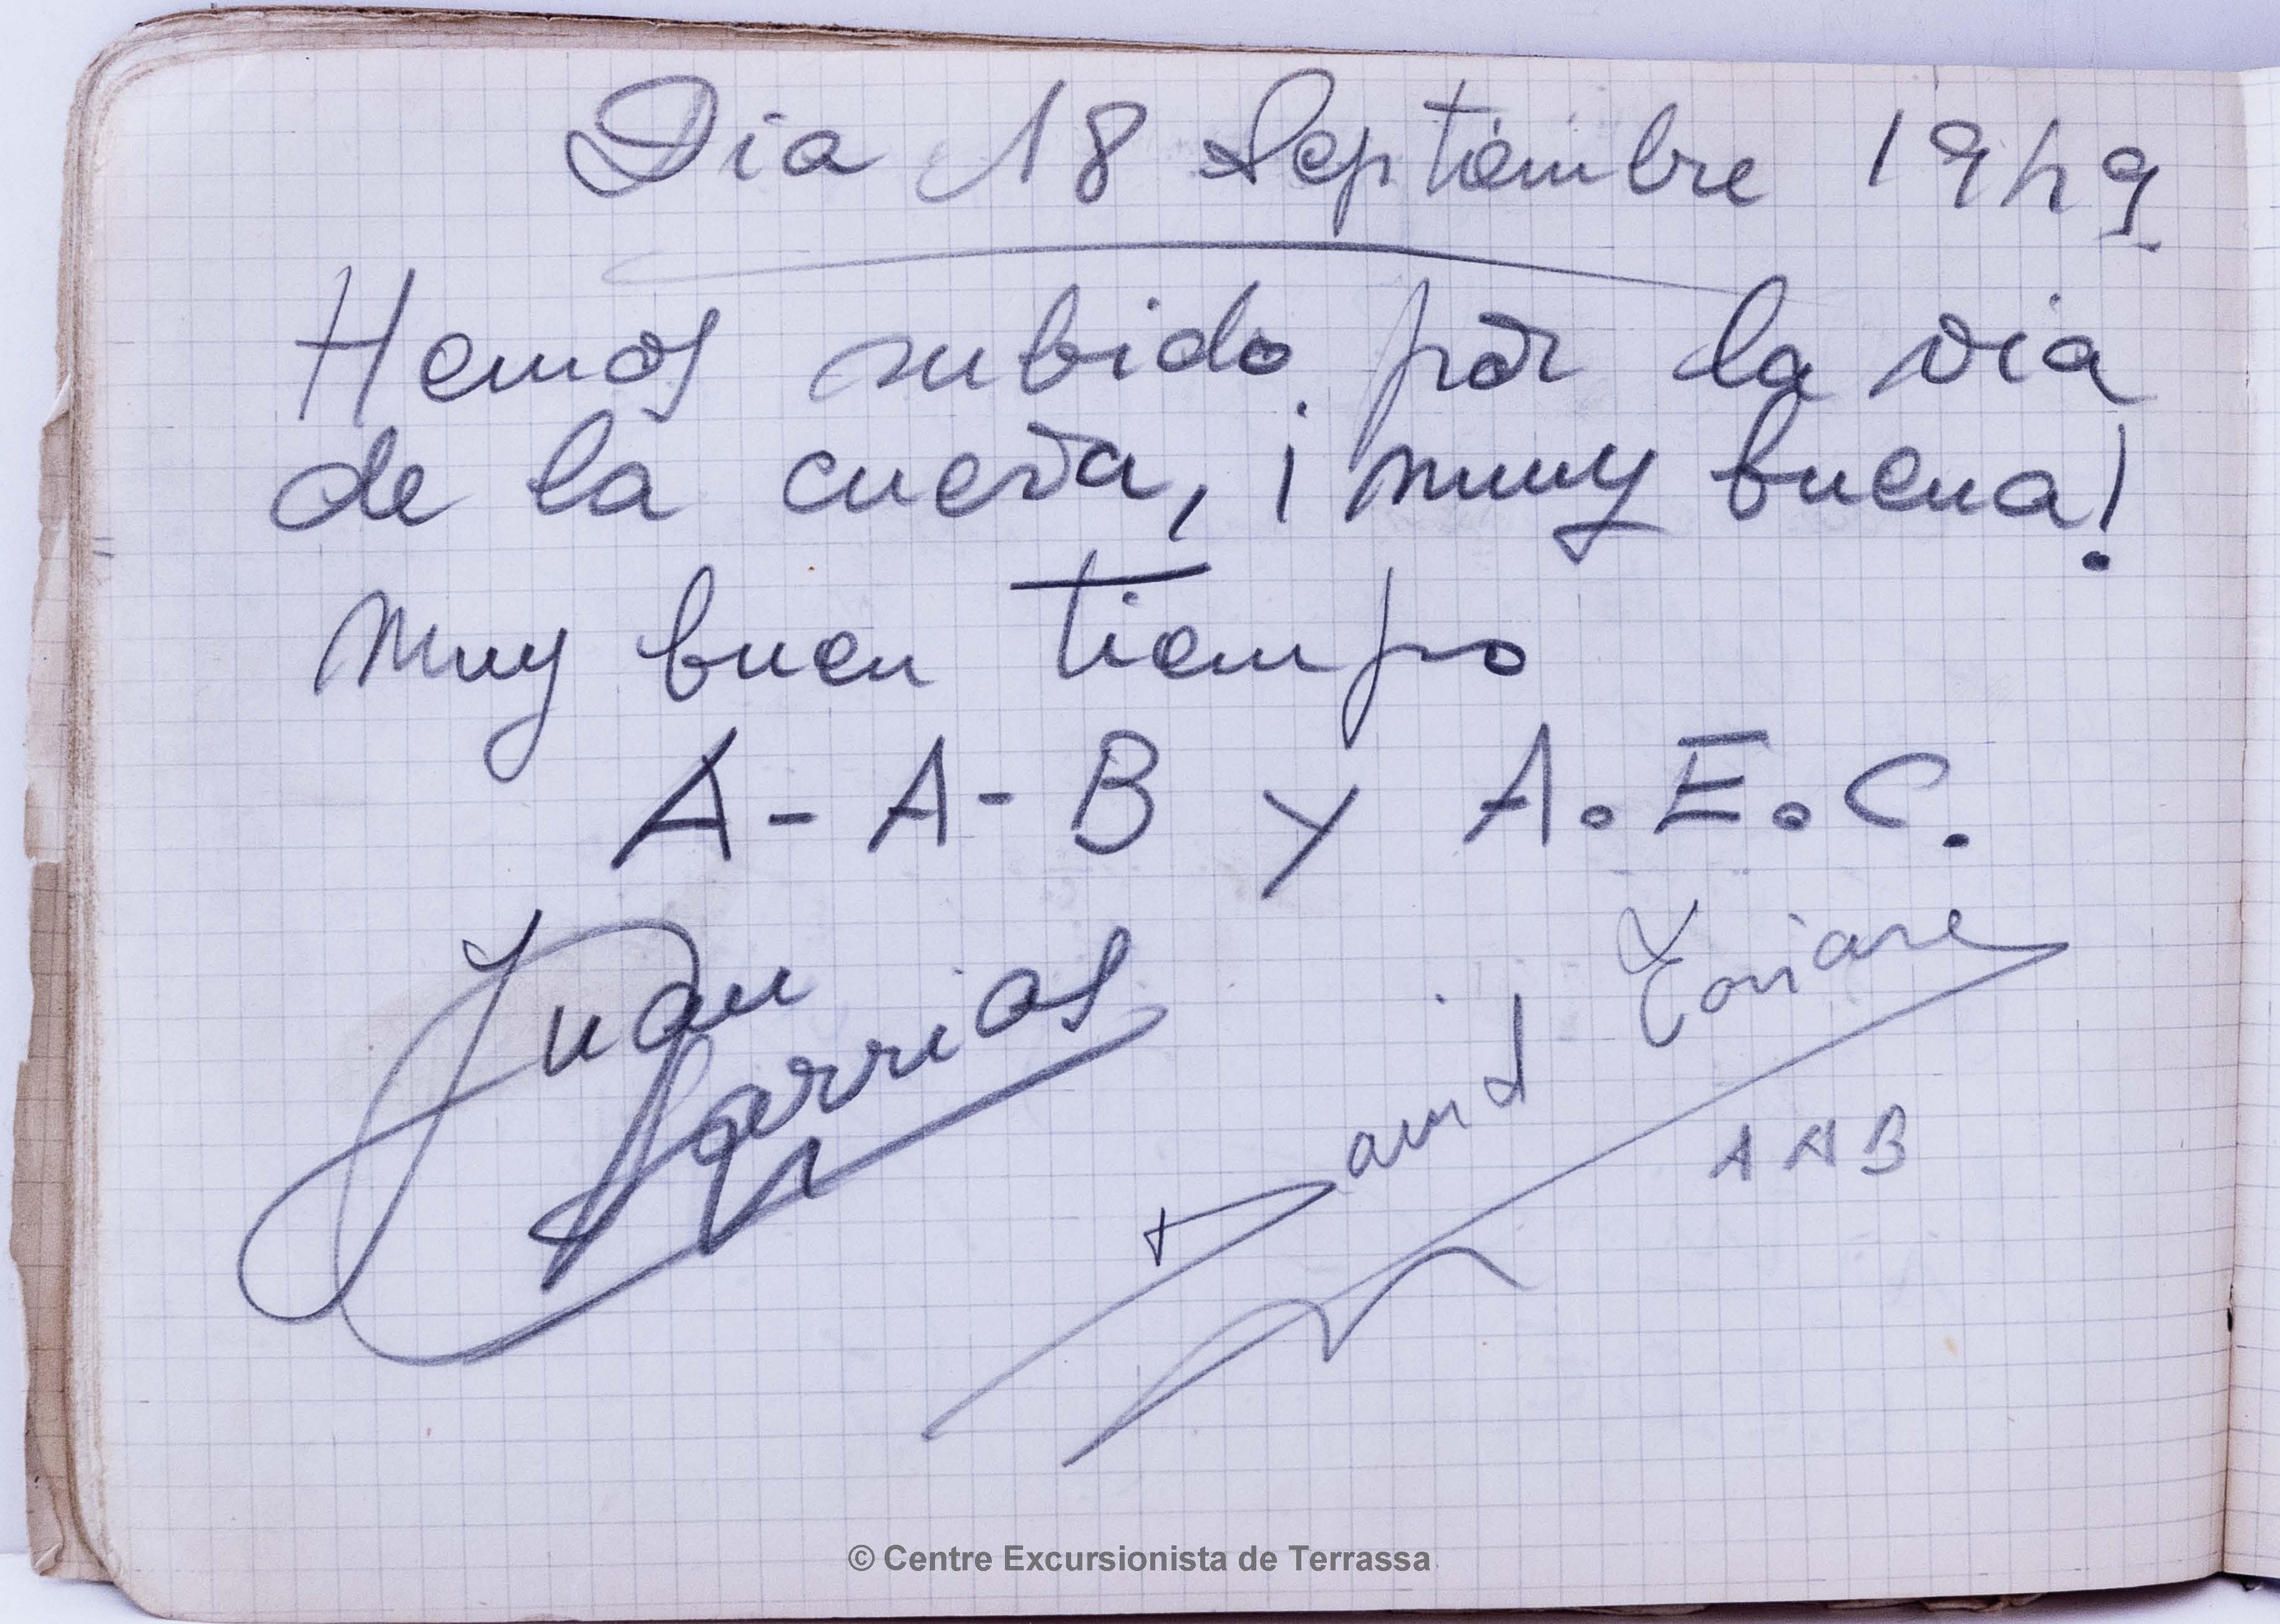 Dia 18 Septiembre 1949
Hemos subido por la via
de la cueva, ¡muy buena!
Muy buen tiempo
A-A-B y A.E.C.
Juan
Barrios
David
AAB
© Centre Excursionista de Terrassa